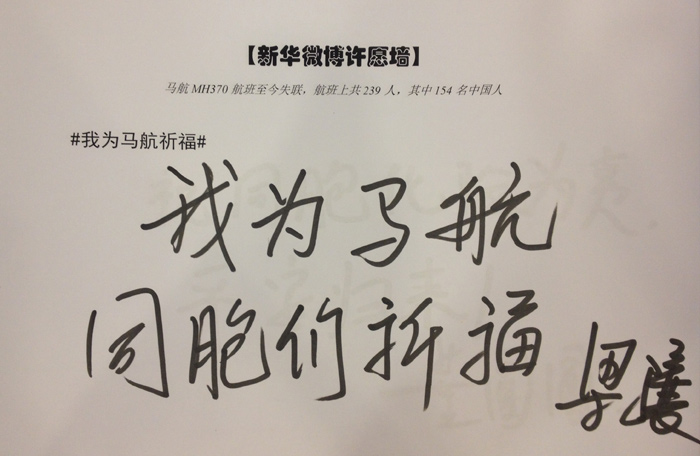 【新华微博许愿墙】
马航 MH370 航班至今失联，航班上共 239 人，其中 154 名中国人
#我为马航祈福#
我为马航
同胞们祈福